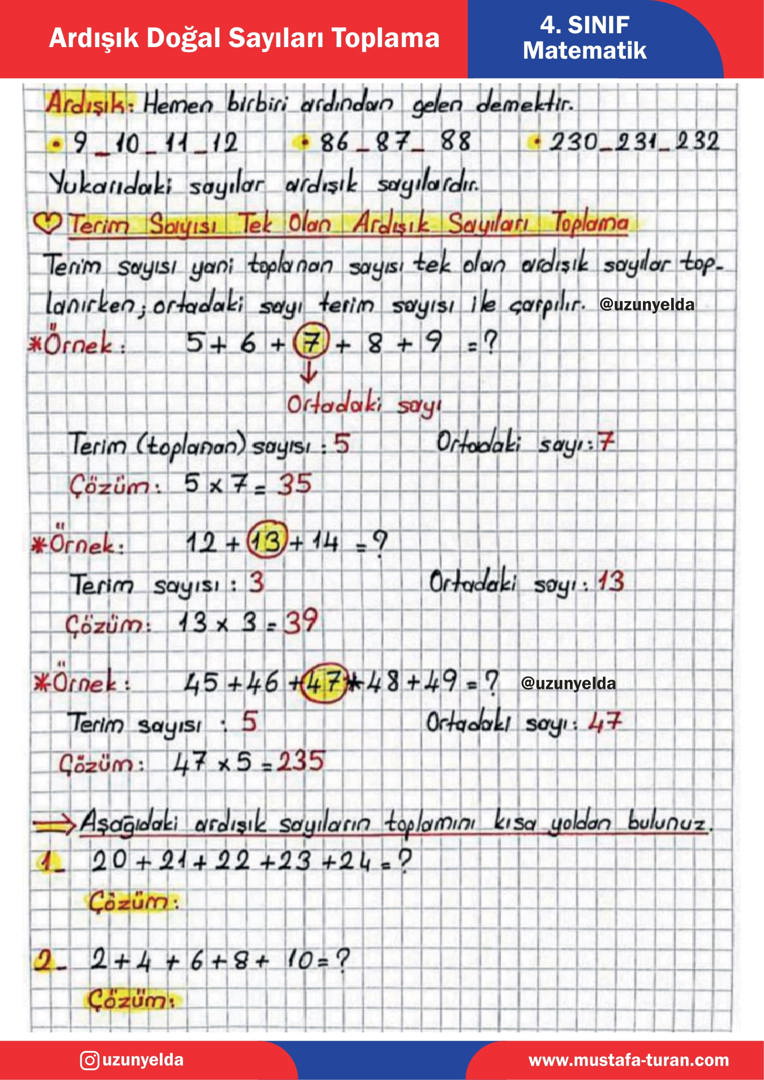 Ardışık Doğal Sayıları Toplama
4. SINIF
Matematik
Ardışık: Hemen birbiri ardından gelen demektir.
• 9_10_11_12 • 86_87_88 • 230_231_232
Yukarıdaki sayılar ardışık sayılardır.
Terim Sayısı Tek Olan Ardışık Sayıları Toplama
Terim sayısı yani toplanan sayısı tek olan ardışık sayılar top-
lanırken; ortadaki sayı terim sayısı ile çarpılır. @uzunyelda
*Örnek: 5 + 6 + 7 + 8 + 9 = ?
Ortadaki sayı
Terim (toplanan) sayısı : 5 Ortadaki sayı: 7
Çözüm: 5 x 7 = 35
*Örnek: 12 + 13 + 14 = ?
Terim sayısı : 3 Ortadaki sayı: 13
Çözüm: 13 x 3 = 39
*Örnek: 45 + 46 + 47 + 48 + 49 = ? @uzunyelda
Terim sayısı : 5 Ortadaki sayı: 47
Çözüm: 47 x 5 = 235
⇒ Aşağıdaki ardışık sayıların toplamını kısa yoldan bulunuz.
1_ 20 + 21 + 22 + 23 + 24 = ?
Çözüm:
2_ 2 + 4 + 6 + 8 + 10 = ?
Çözüm:
uzunyelda
www.mustafa-turan.com